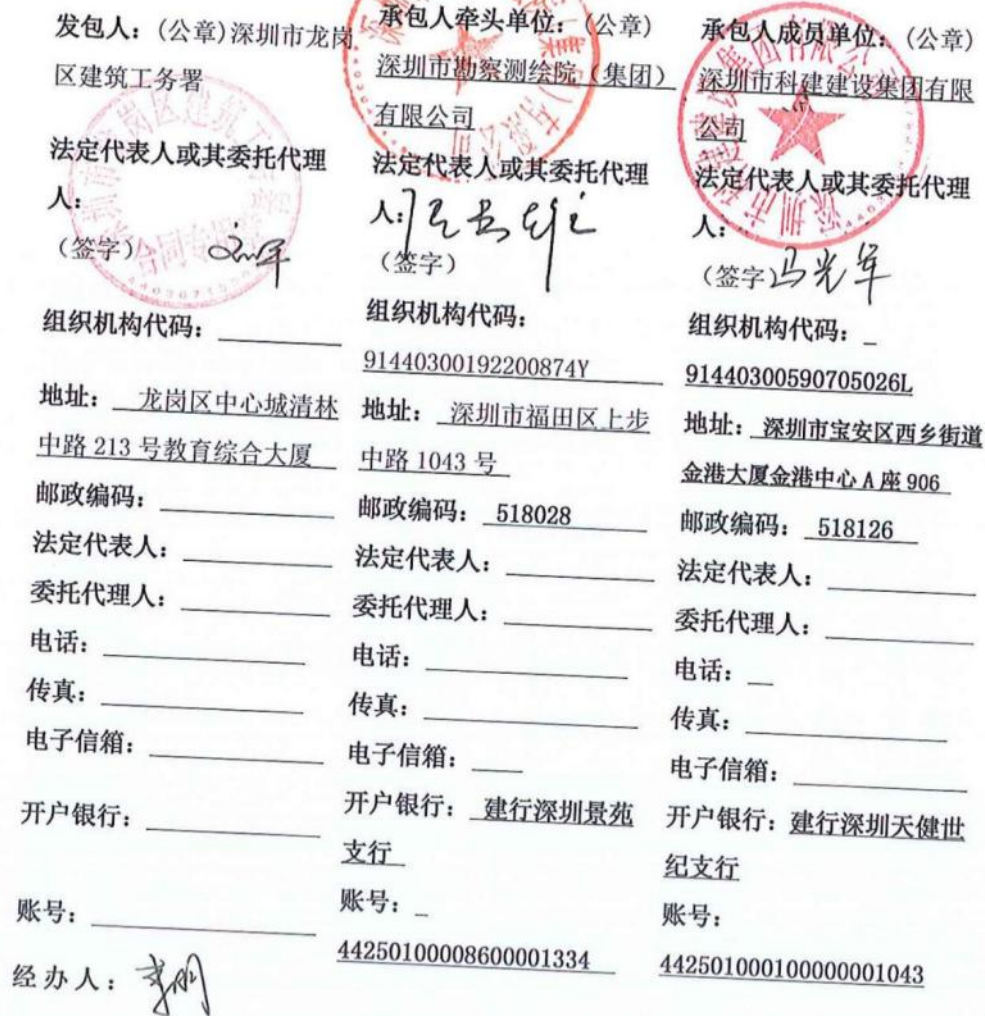 发包人：(公章)深圳市龙岗
区建筑工务署
法定代表人或其委托代理
人：
（签字）
组织机构代码：
地址： 龙岗区中心城清林
中路 213 号教育综合大厦
邮政编码：
法定代表人：
委托代理人：
电话：
传真：
电子信箱：
开户银行：
账号：
经办人：
承包人牵头单位：（公章）
深圳市勘察测绘院（集团）
有限公司
法定代表人或其委托代理
人：
（签字）
组织机构代码：
91440300192200874Y
地址： 深圳市福田区上步
中路 1043 号
邮政编码： 518028
法定代表人：
委托代理人：
电话：
传真：
电子信箱：
开户银行： 建行深圳景苑
支行
账号：
44250100008600001334
承包人成员单位：（公章）
深圳市科建建设集团有限
公司
法定代表人或其委托代理
人：
（签字 冯光军
组织机构代码：
91440300590705026L
地址： 深圳市宝安区西乡街道
金港大厦金港中心 A 座 906
邮政编码： 518126
法定代表人：
委托代理人：
电话：
传真：
电子信箱：
开户银行：建行深圳天健世
纪支行
账号：
442501000100000001043